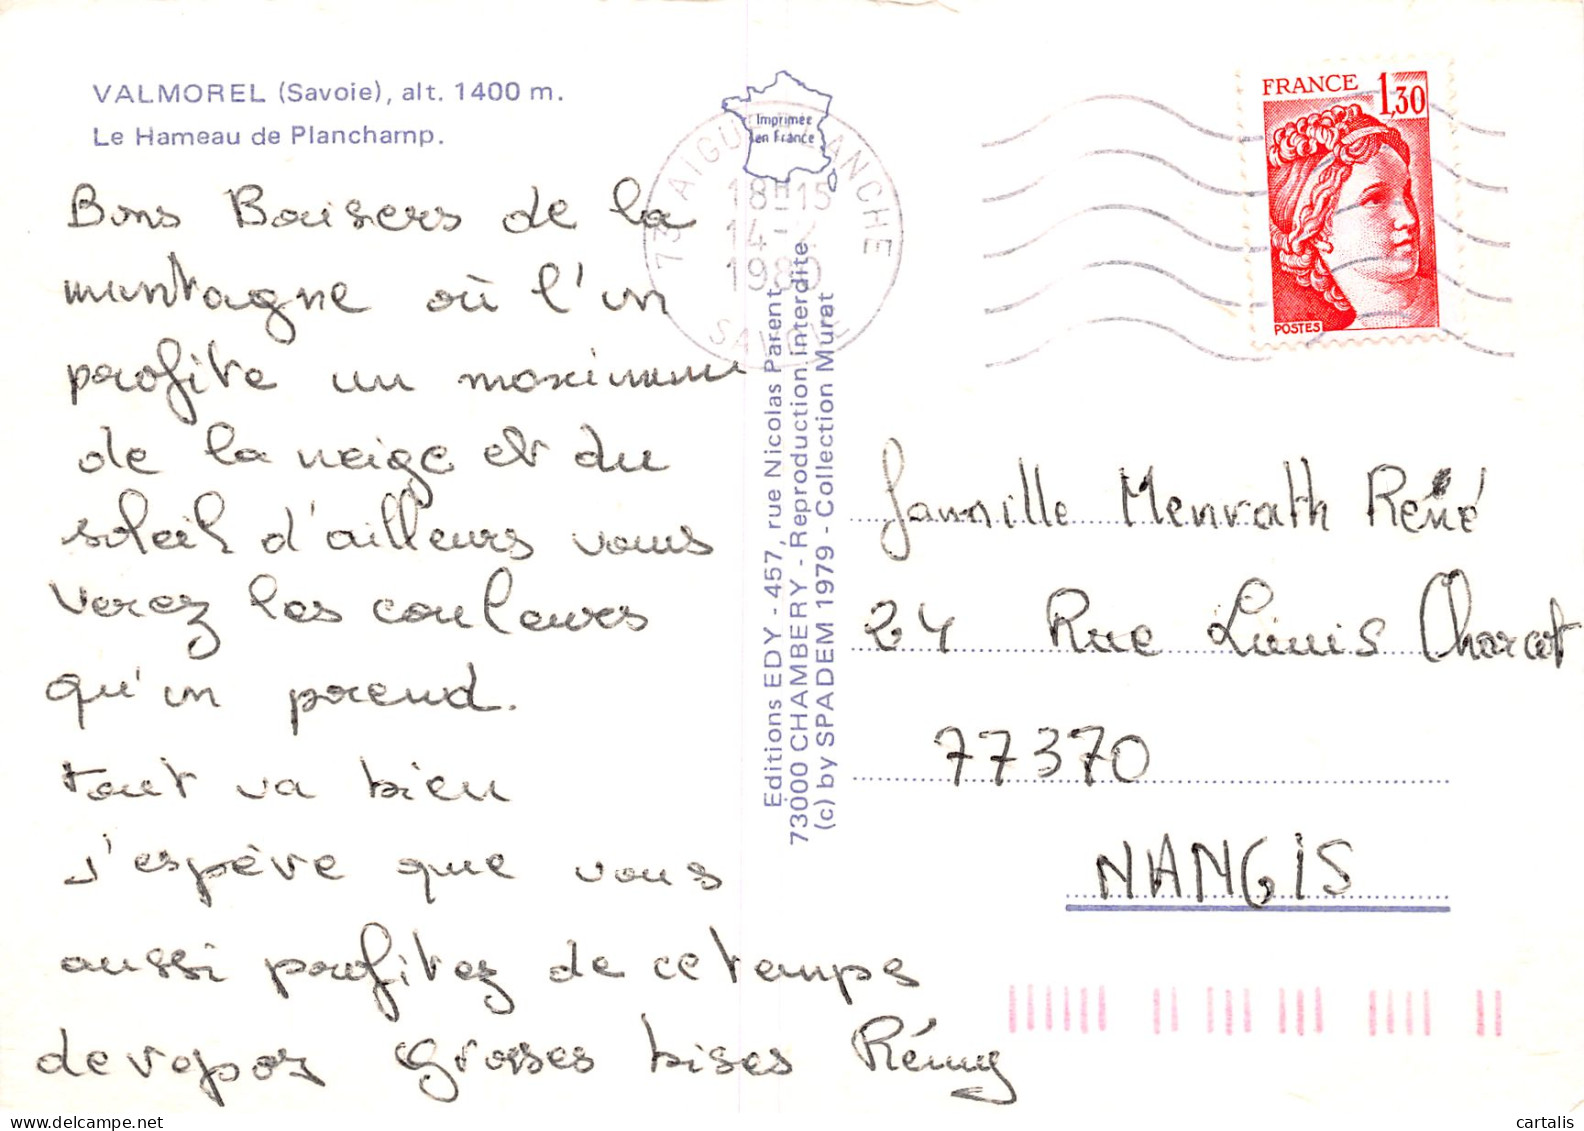 VALMOREL (Savoie), alt. 1400 m.
Le Hameau de Planchamp.
Bons Baisers de la
montagne où l'on
profite un maximum
de la neige et du
soleil d'ailleurs vous
verez les couleurs
qu'on prend.
tout va bien
j'espère que vous
aussi profitez de ce temps
de repos grosses bises Rémy
Imprimée
en France
73 AIGUEBLANCHE
18H15
14-
1980
SAVOIE
Editions EDY - 457, rue Nicolas Parent
73000 CHAMBERY - Reproduction interdite
(c) by SPADEM 1979 - Collection Murat
FRANCE 1,30
POSTES
famille Menrath René
24 Rue Louis Charcot
77370
NANGIS
delcampe.net
cartalis